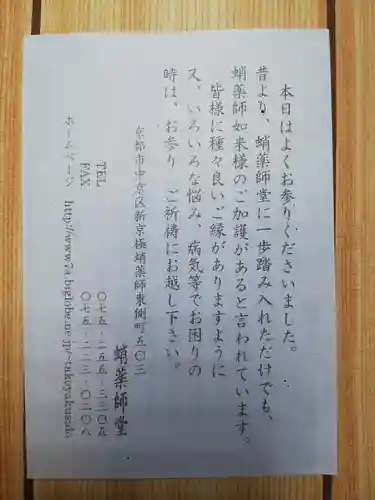 本日はよくお参りくださいました。
昔より、蛸薬師堂に一歩踏み入れただけでも、
蛸薬師如来様のご加護があると言われています。
皆様に種々良いご縁がありますように
又、いろいろな悩み、病気等でお困りの
時は、お参り、ご祈祷にお越し下さい。
京都市中京区新京極蛸薬師東側町五〇三
蛸薬師堂
TEL 〇七五-二五五-三三〇五
FAX 〇七五-二二三-〇二〇八
ホームページ http://www7a.biglobe.ne.jp/~takoyakusido